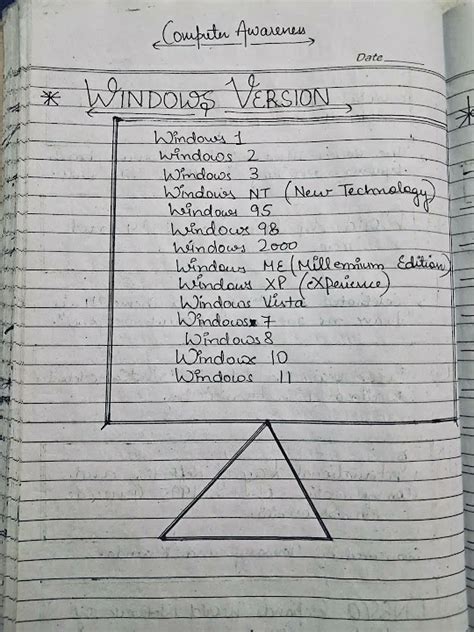 Computer Awareness
Date
* WINDOWS VERSION
Windows 1
Windows 2
Windows 3
Windows NT (New Technology)
Windows 95
Windows 98
Windows 2000
Windows ME (Millemium Edition)
Windows XP (eXperience)
Windows Vista
Windows 7
Windows 8
Windows 10
Windows 11